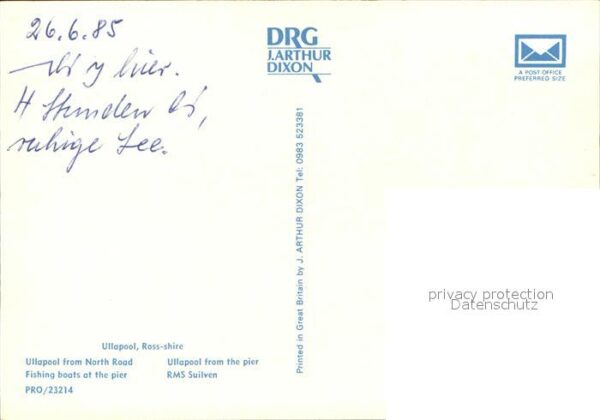 26.6.85
hier.
4 Stunden
ruhige See.
DRG
J. ARTHUR
DIXON
A POST OFFICE
PREFERRED SIZE
Printed in Great Britain by J. ARTHUR DIXON Tel: 0983 523381
privacy protection
Datenschutz
Ullapool, Ross-shire
Ullapool from North Road Ullapool from the pier
Fishing boats at the pier RMS Suilven
PRO/23214